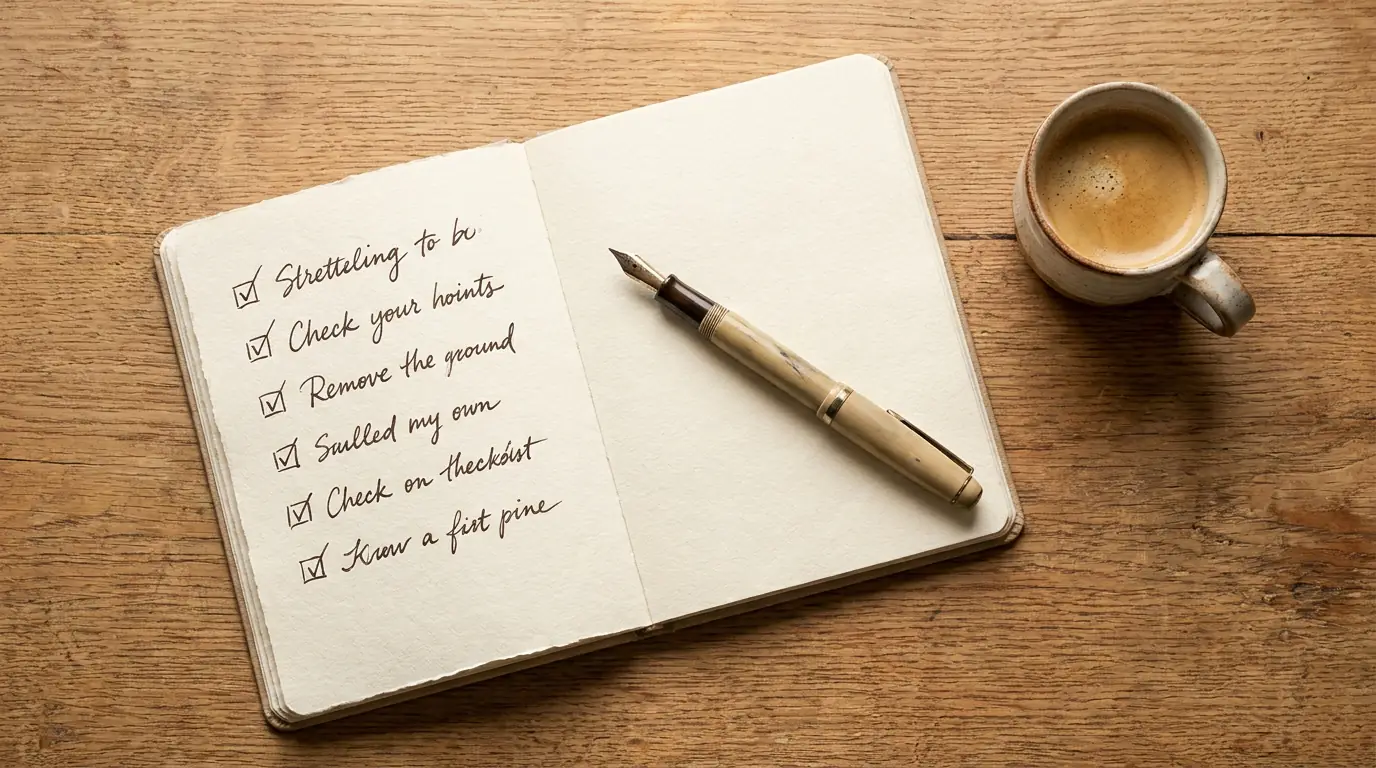 Stretteling to be
Check your hoints
Remove the ground
Sulled my own
Check on theckóist
Know a fist pine